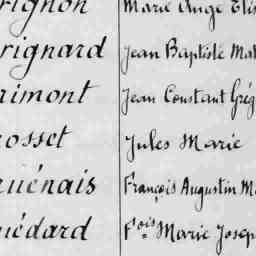 rignon Marie Ange Elis
rignard Jean Baptiste Mat
rimont Jean Constant Grég
rosset Jules Marie
ruénais François Augustin Ma
uédard Fois Marie Josep